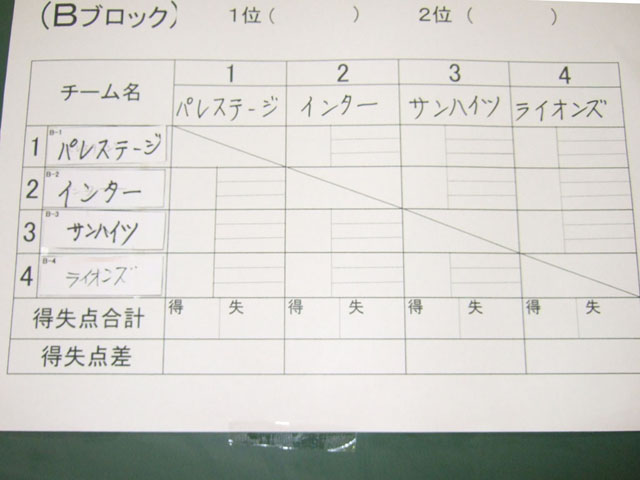 (Bブロック) 1位( ) 2位( )
チーム名 1 2 3 4
パレステージ インター サンハイツ ライオンズ
1 B-1 パレステージ
2 B-2 インター
3 B-3 サンハイツ
4 B-4 ライオンズ
得失点合計 得 失 得 失 得 失 得 失
得失点差